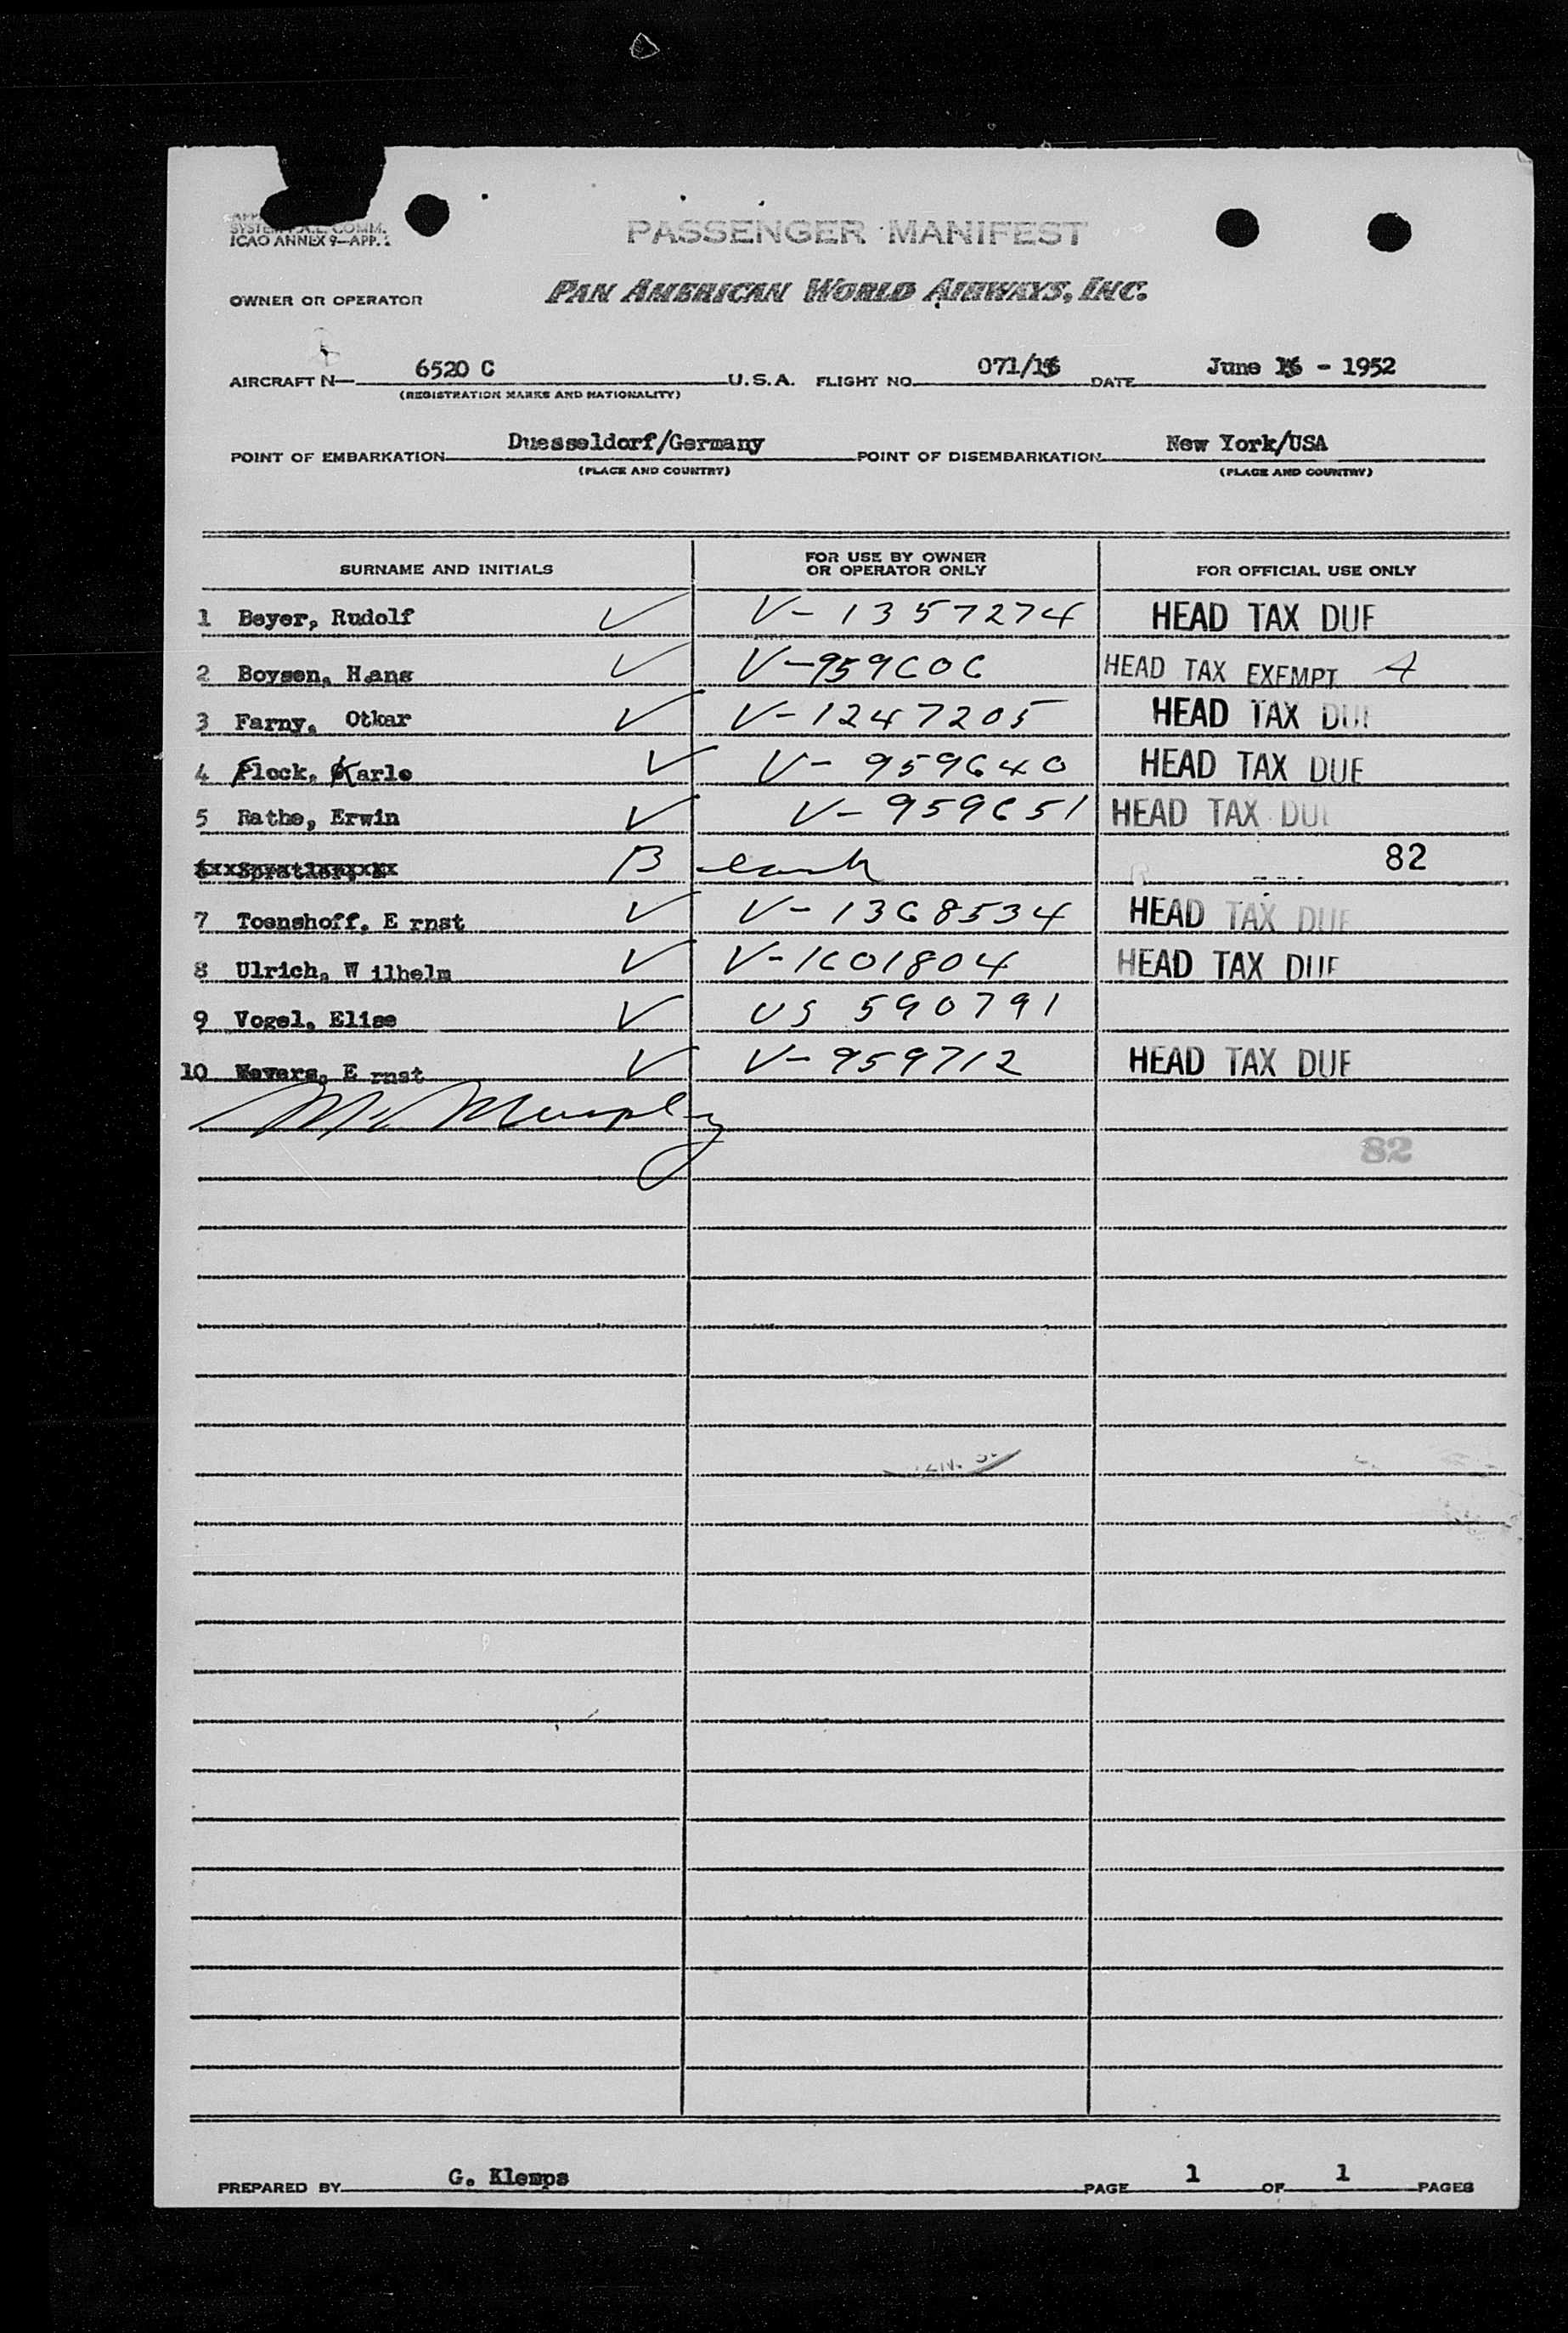 SYSTEM A.L. COMM.
ICAO ANNEX 9—APP.
PASSENGER MANIFEST
OWNER OR OPERATOR PAN AMERICAN WORLD AIRWAYS, INC.
AIRCRAFT N— 6520 C U.S.A. FLIGHT NO. 071/16 DATE June 16 - 1952
(REGISTRATION MARKS AND NATIONALITY)
POINT OF EMBARKATION Duesseldorf/Germany POINT OF DISEMBARKATION New York/USA
(PLACE AND COUNTRY) (PLACE AND COUNTRY)
SURNAME AND INITIALS FOR USE BY OWNER OR OPERATOR ONLY FOR OFFICIAL USE ONLY
1 Beyer, Rudolf ✓ V-1357274 HEAD TAX DUE
2 Boysen, Hans ✓ V-959606 HEAD TAX EXEMPT A
3 Farny, Otkar ✓ V-1247205 HEAD TAX DUE
4 Flock, Karle ✓ V-959640 HEAD TAX DUE
5 Rathe, Erwin ✓ V-959651 HEAD TAX DUE
82
7 Toenshoff, E rnst ✓ V-1368534 HEAD TAX DUE
8 Ulrich, W ilhelm ✓ V-1601804 HEAD TAX DUE
9 Vogel, Elise ✓ US 590791
10 Wevers, E rnst ✓ V-959712 HEAD TAX DUE
82
PREPARED BY G. Klemps PAGE 1 OF 1 PAGES